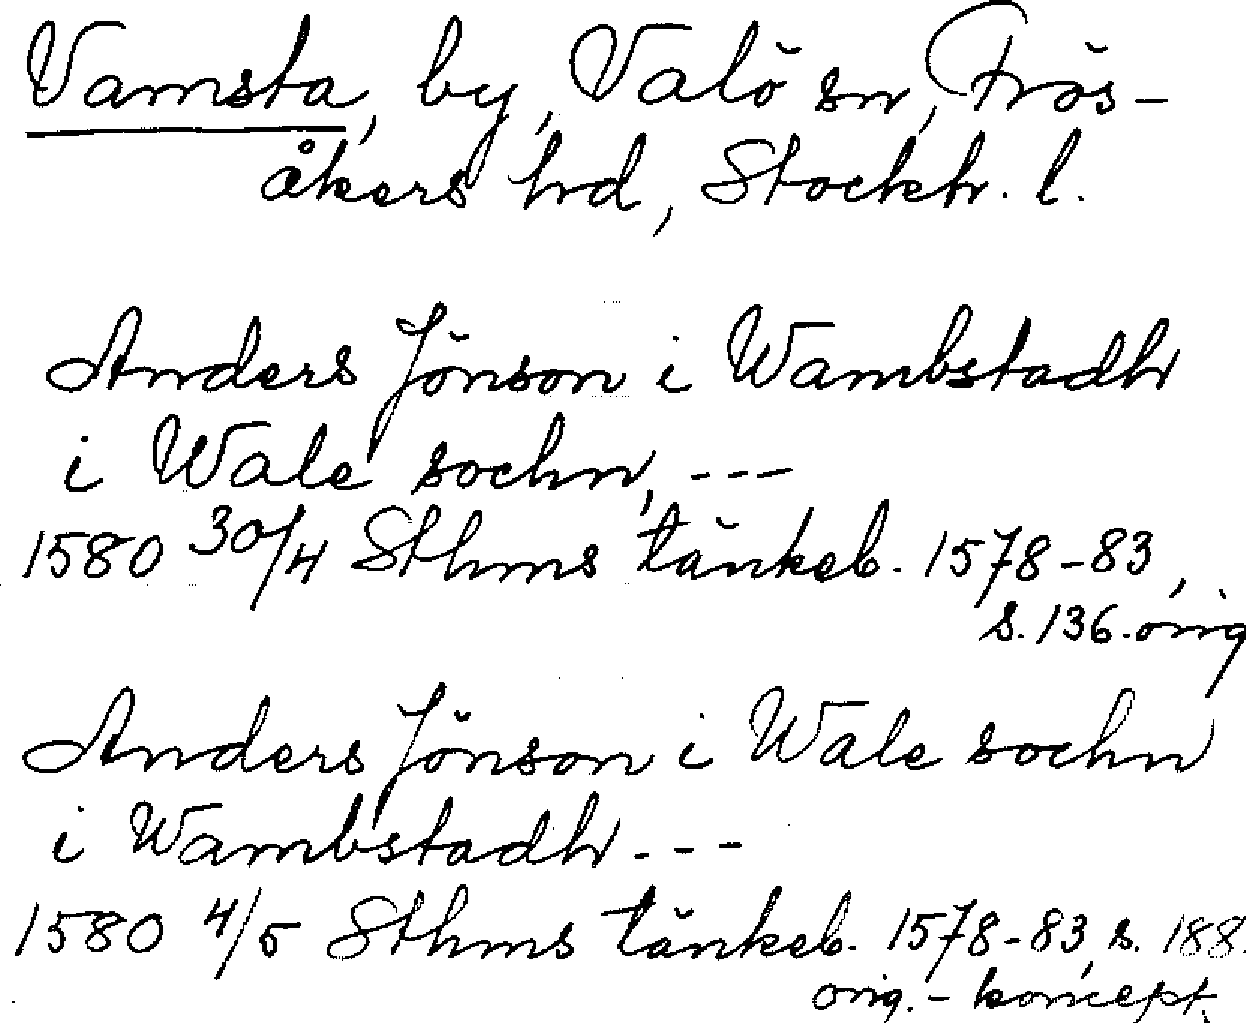 Vamsta, by, Valö sn, Frös-
åkers hd, Stockh. l.
Anders Jönson i Wambstadh
i Wale sochn, ---
1580 30/4 Sthms tänkeb. 1578-83,
s. 136. orig
Anders Jönson i Wale sochn
i Wambstadh ---
1580 4/5 Sthms tänkeb. 1578-83, s. 188.
orig. - koncept.